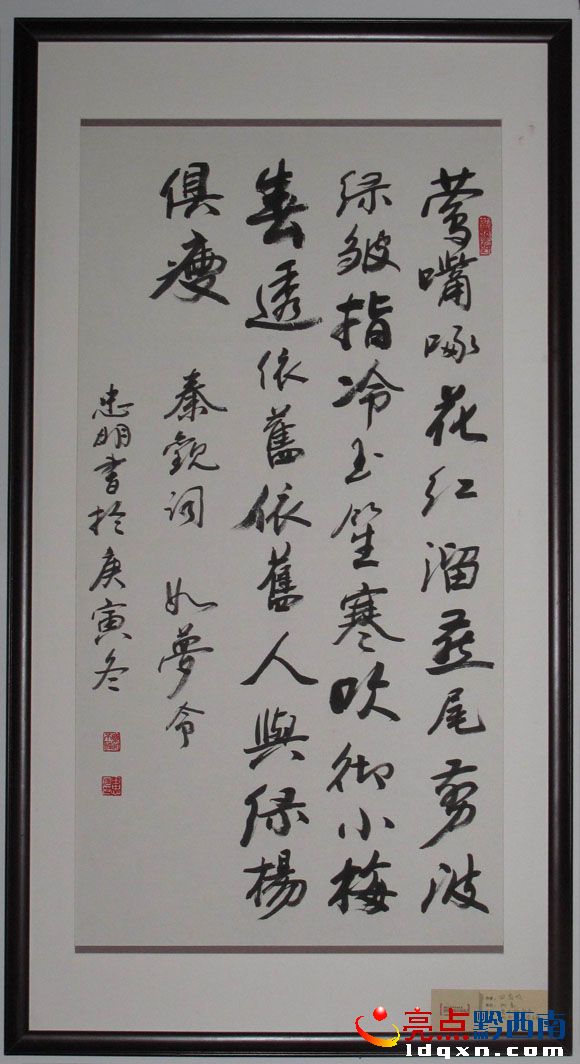 莺嘴啄花红溜燕尾剪波
绿皱指冷玉笙寒吹彻小梅
春透依舊依舊人與绿楊
俱瘦 秦觀词 如夢令
忠明書於庚寅冬
亮点黔西南
ldqxn.com